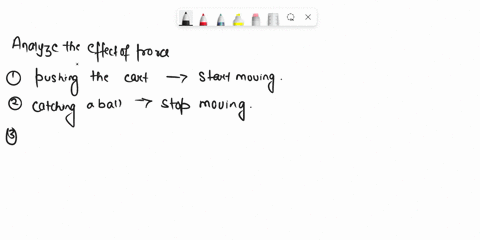 Analyze the effect of force
① pushing the cart → start moving.
② catching a ball → stop moving.
③